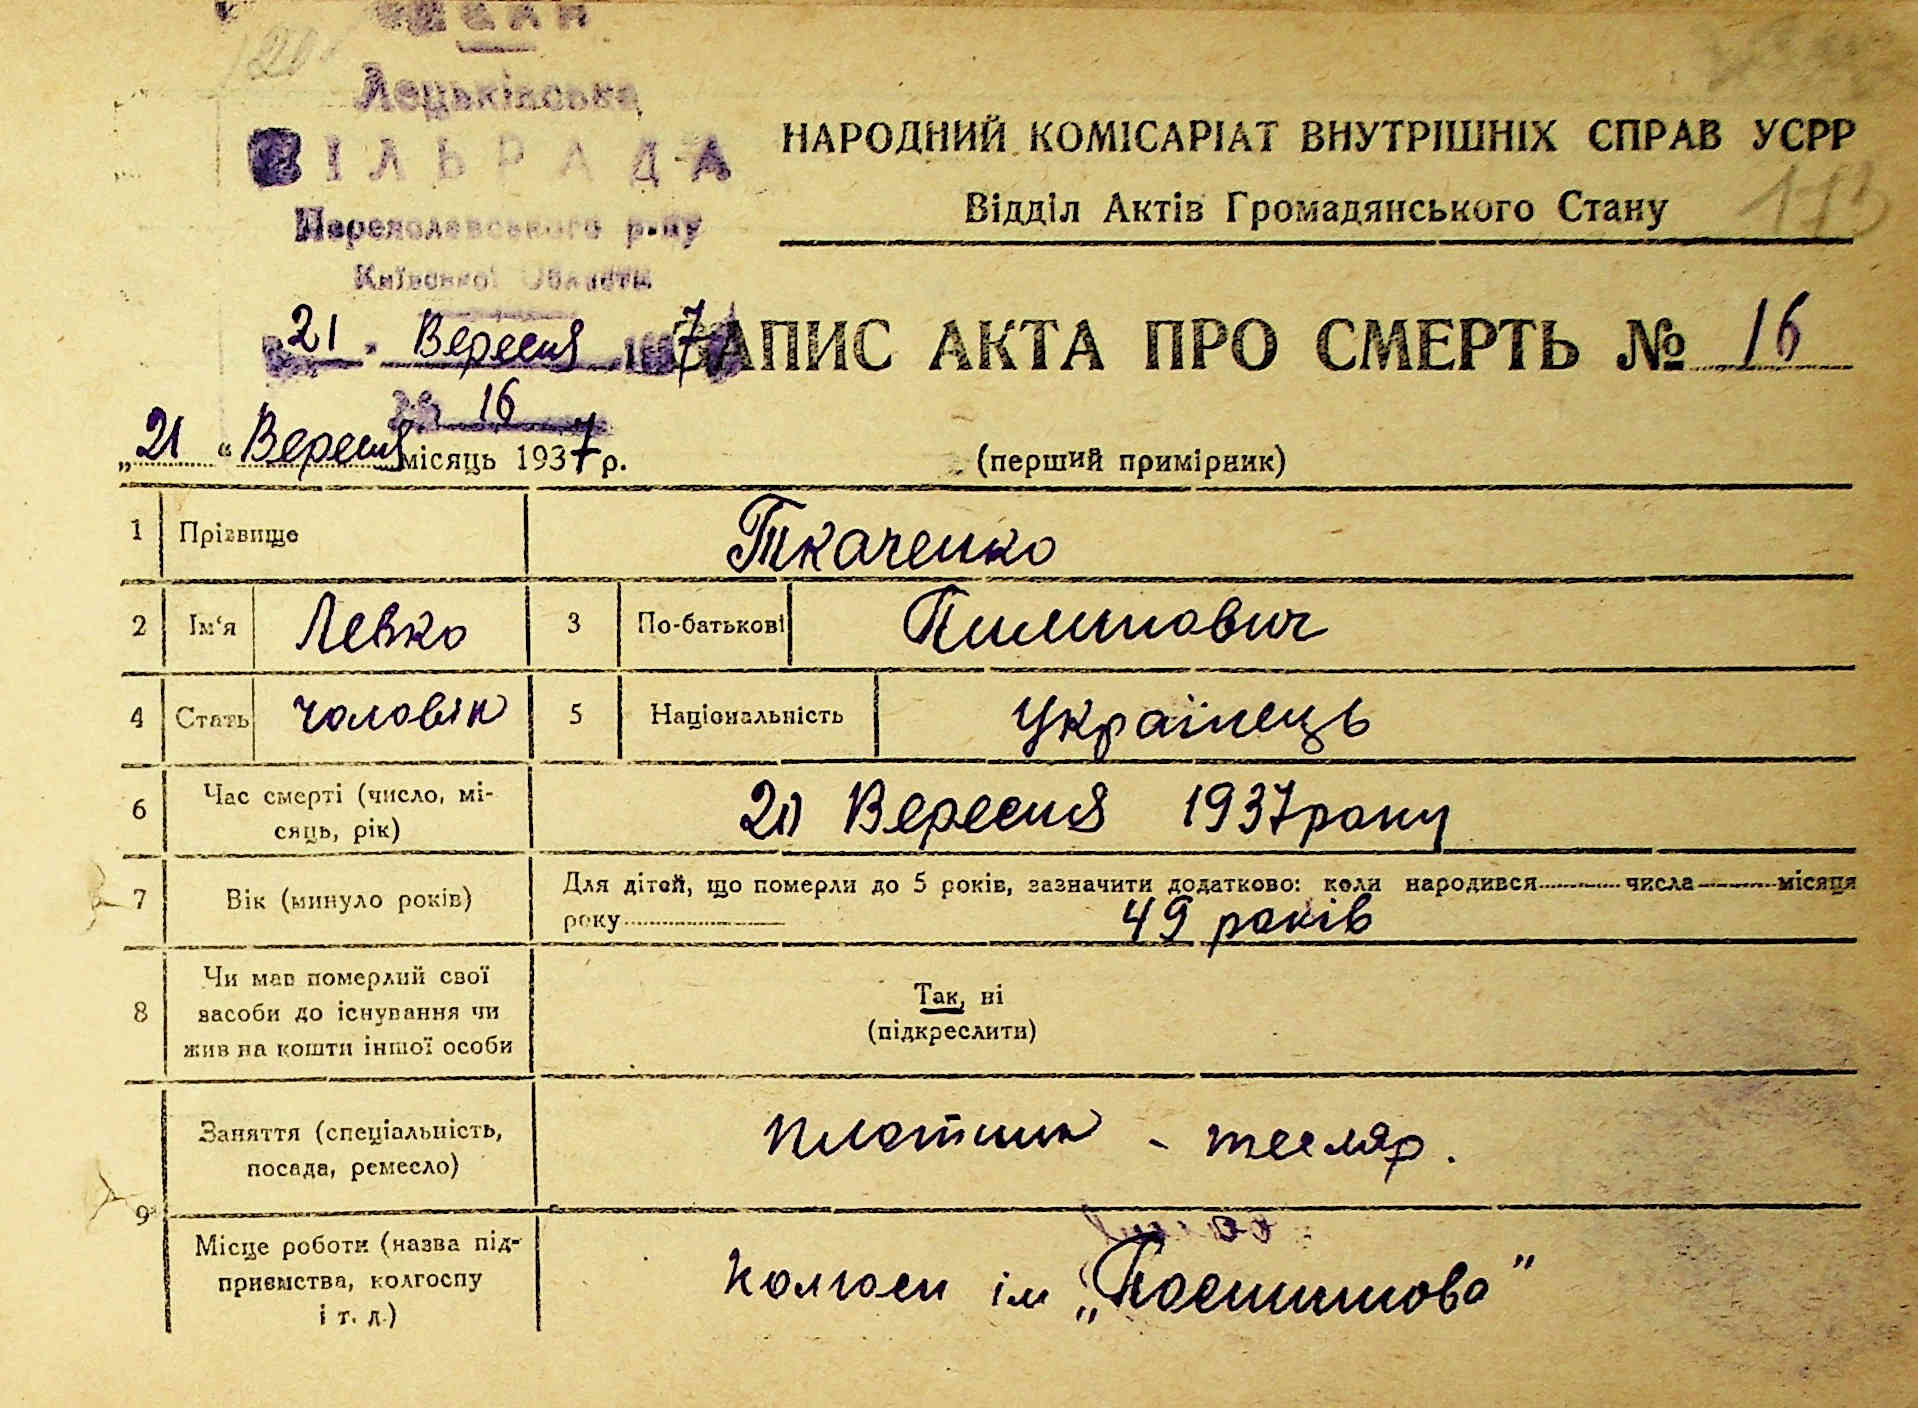 Лецьківська
СІЛЬРАДА
Переяславського р-ну
Київської Области
21 Вересня 1937
16
НАРОДНИЙ КОМІСАРІАТ ВНУТРІШНІХ СПРАВ УСРР
Відділ Актів Громадянського Стану
173
ЗАПИС АКТА ПРО СМЕРТЬ № 16
„21“ Вересня місяць 1937 р.
(перший примірник)
1 Прізвище Ткаченко
2 Ім'я Левко 3 По-батькові Пилипович
4 Стать чоловік 5 Національність Українець
6 Час смерті (число, мі-
сяць, рік) 20 Вересня 1937 року
7 Вік (минуло років) Для дітей, що померли до 5 років, зазначити додатково: коли народився числа місяця
року 49 років
8 Чи мав померлий свої
засоби до існування чи
жив на кошти іншої особи
Так, ні
(підкреслити)
9 Заняття (спеціальність,
посада, ремесло) плотник - тесляр.
Місце роботи (назва під-
приємства, колгоспу
і т. д.)
Колгосп ім „Постишова"